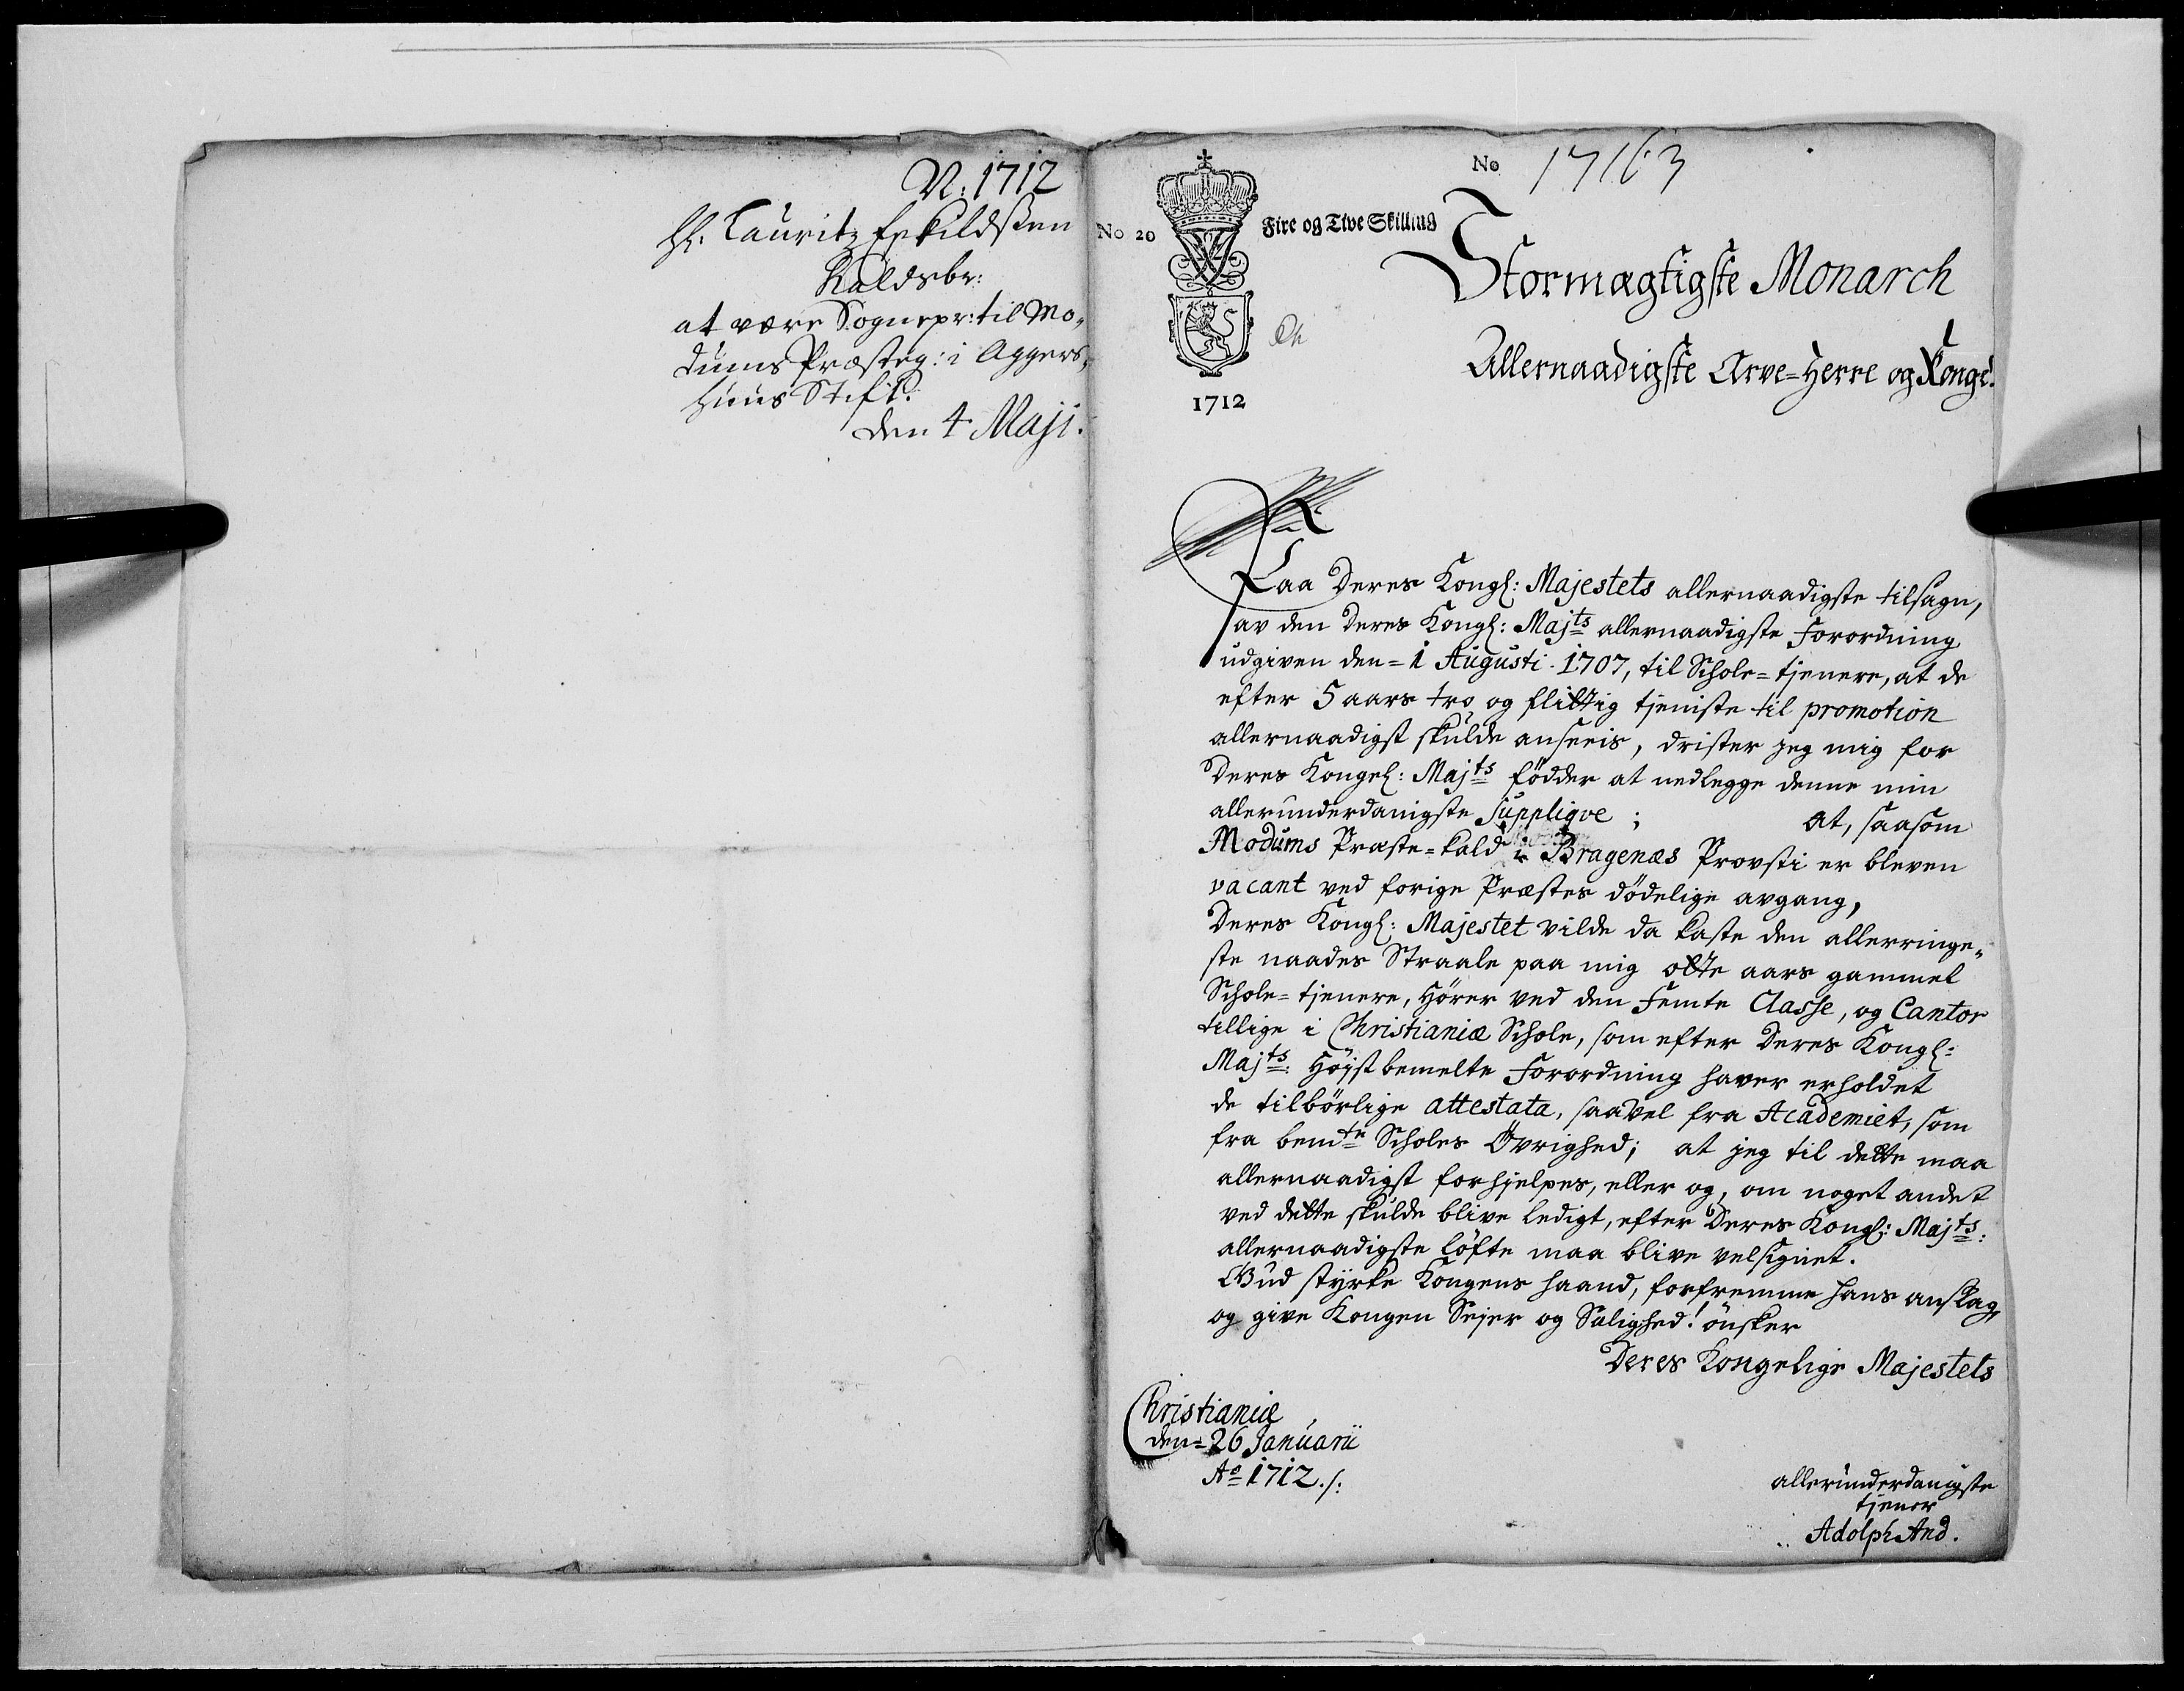 N. 1712
Hr. Lauritz Eskildsßen
Kaldsbr:
at være Sognepr: til Mo-
dums Præsteg: i Aggers-
huus Stift.
den 4 Maji.
No 20
Fire og Tive Skilling
No 17163
1712
Stormægtigste Monarch
Allernaadigste Arve-Herre og Konge.
Paa Deres Kongl: Majestets allernaadigste tilsagn,
av den Deres Kongl: Majts allernaadigste Forordning
udgiven den=1 Augusti 1707, til Schole=tjenere, at de
efter 5 aars tro og flittig tjeniste til promotion
allernaadigst skulde anseeis, drister jeg mig for
Deres Kongel: Majts födder at nedlegge denne min
allerunderdanigste Suppliqve; at, saasom
Modums Præste=kald i Bragenæs Provsti er bleven
vacant ved forige Præstes dödelige avgang,
Deres Kongl: Majestet vilde da kaste den allerringe-
ste naades Straale paa mig otte aars gammel
Schole=tjenere, Hörer ved den Femte Classe, og Cantor
tillige i Christianiæ Schole, som efter Deres Kongl:
Majts: Höjstbemelte Forordning haver erholdet
de tilbörlige attestata, saavel fra Academiet, som
fra bemte Scholes Övrighed; at jeg til dette maa
allernaadigst forhjelpes, eller og, om noget andet
ved dette skulde blive ledigt, efter Deres Kongl: Majts:
allernaadigste löfte maa blive velsignet.
Gud styrke Kongens haand, forfremme hans anslag,
og give Kongen Sejer og Salighed! önsker
Deres Kongelige Majestets
Christianiæ
den=26 Januarii
Ao 1712./:
allerunderdanigste
tjener
Adolph And.